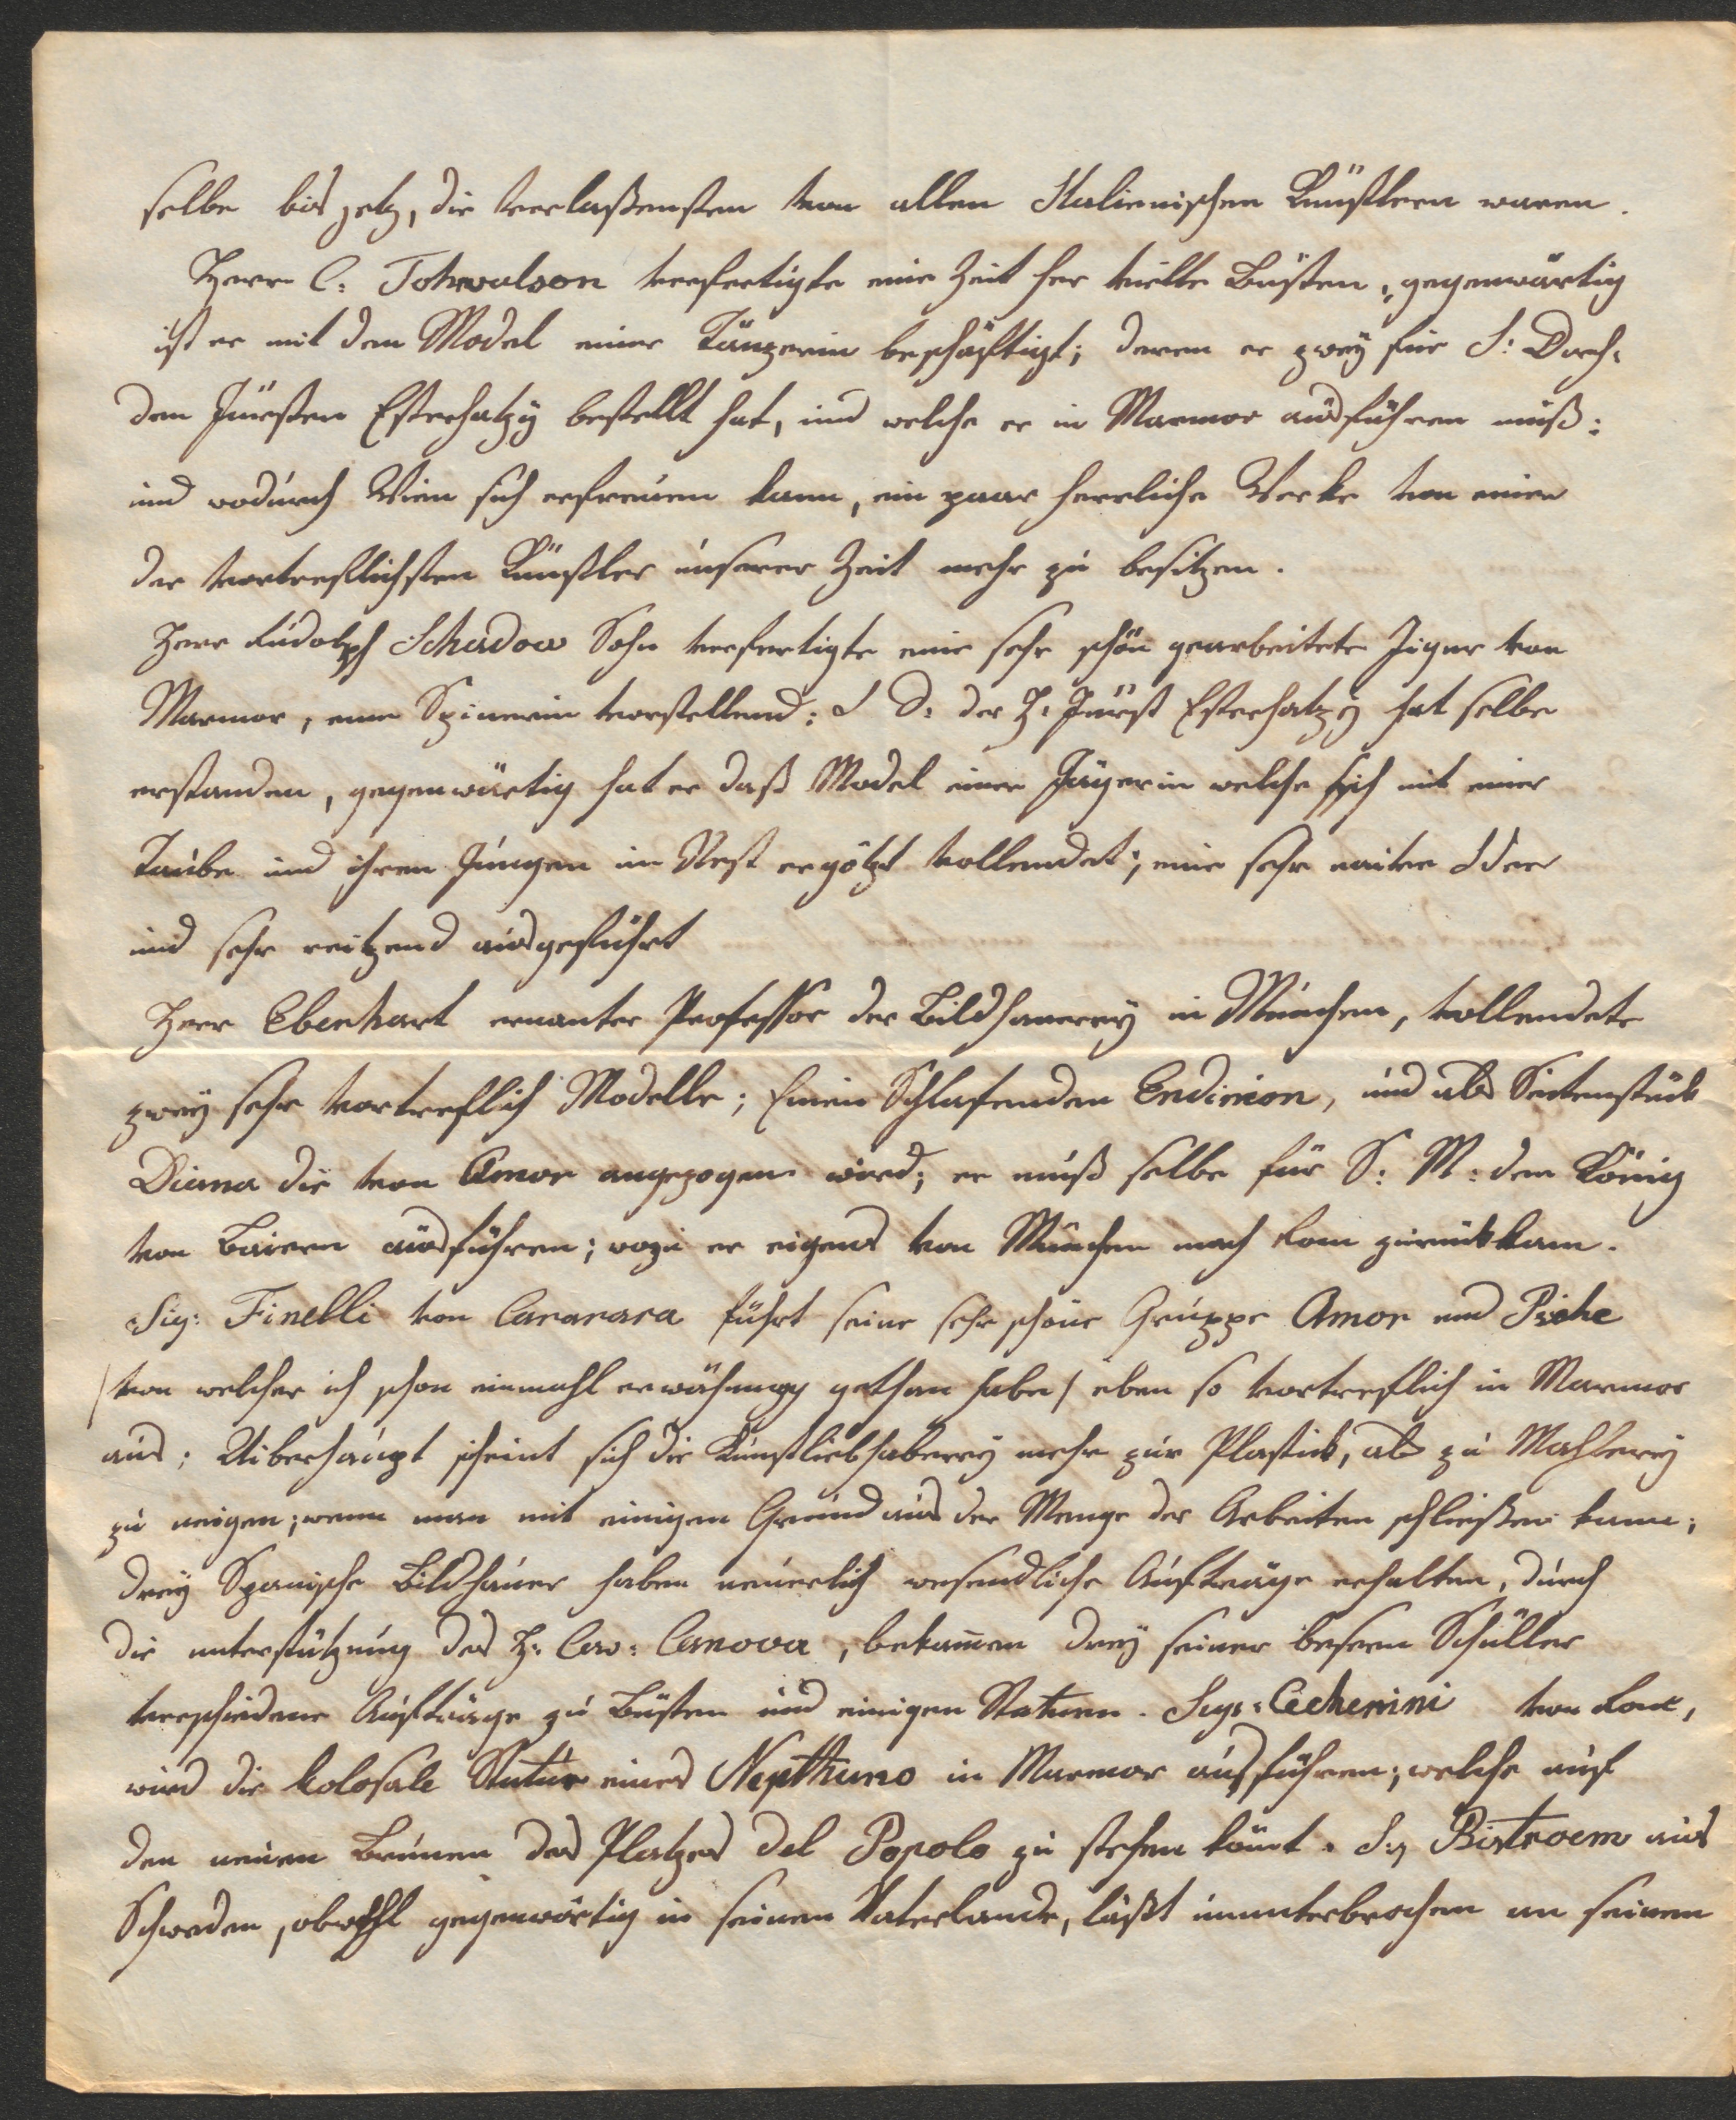 selbe bis jetz, die verlaßensten von allen Italienischen Künstlern waren.
Herr C: Tohrwalson verfertigte eine Zeit her vielle Büsten, gegenwärtig
ist er mit dem Model einer Tänzerin beschäftigt; deren er zwey für S: Durch:
dem Fürsten Esterhatzÿ bestellt hat, und welche er in Marmor ausführen muß:
und wodurch Wien sich erfreuen kann, ein paar herrliche Werke von einen
der vortreflichsten Künstler unserer Zeit mehr zu besitzen.
Herr Rudolph Schadow Sohn verfertigte eine sehr schön gearbeitete Figur von
Marmor, eine Spinerin vorstellend: S D: der H: Fürst Esterhatzÿ hat selbe
erstanden, gegenwärtig hat er daß Model einer Jägerin welche sich mit einer
Taube und ihren Jungen im Nest ergötzt vollendet; eine sehr naive Idee
und sehr reitzend ausgeführt
Herr Eberhart ernanter Professor der Bildhauerey in München, vollendete
zwey sehr vortreflich Modelle; Einen Schlafenden Endimion, und als Seitenstück
Diana die von Amor angezogen wird; er muß selbe für S: M: dem König
von Baiern ausführen; wozu er eigens von München nach Rom zurückkam.
Sig: Finelli von Cararara führt seine sehr schöne Gruppe Amor und Psiche
/von welcher ich schon einmahl erwähnung gethan habe/ eben so vortreflich in Marmor
aus; Uiberhaupt scheint sich die Kunstliebhaberey mehr zur Plastick, als zu Mahlerey
zu neigen; wenn man mit einigem Grund aus der Menge der Arbeiten schließen kann;
drey Spanische Bildhauer haben neuerlich wesendliche Aufträge erhalten, durch
die unterstützung des H: Cav: Canova, bekamen drey seiner besern Schüller
verschiedene Aufträge zu Büsten und einigen Statuen. Sig: Cecherini von Rom,
wird die kolosale Statue eines Nepthuno in Marmor ausführen; welche auf
den neuen Brunen des Platzes del Popolo zu stehen kömt. Sig Bistroem aus
Schweden, obwohl gegenwärtig in seinem Vaterlande, läßt ununterbrochen an seinem